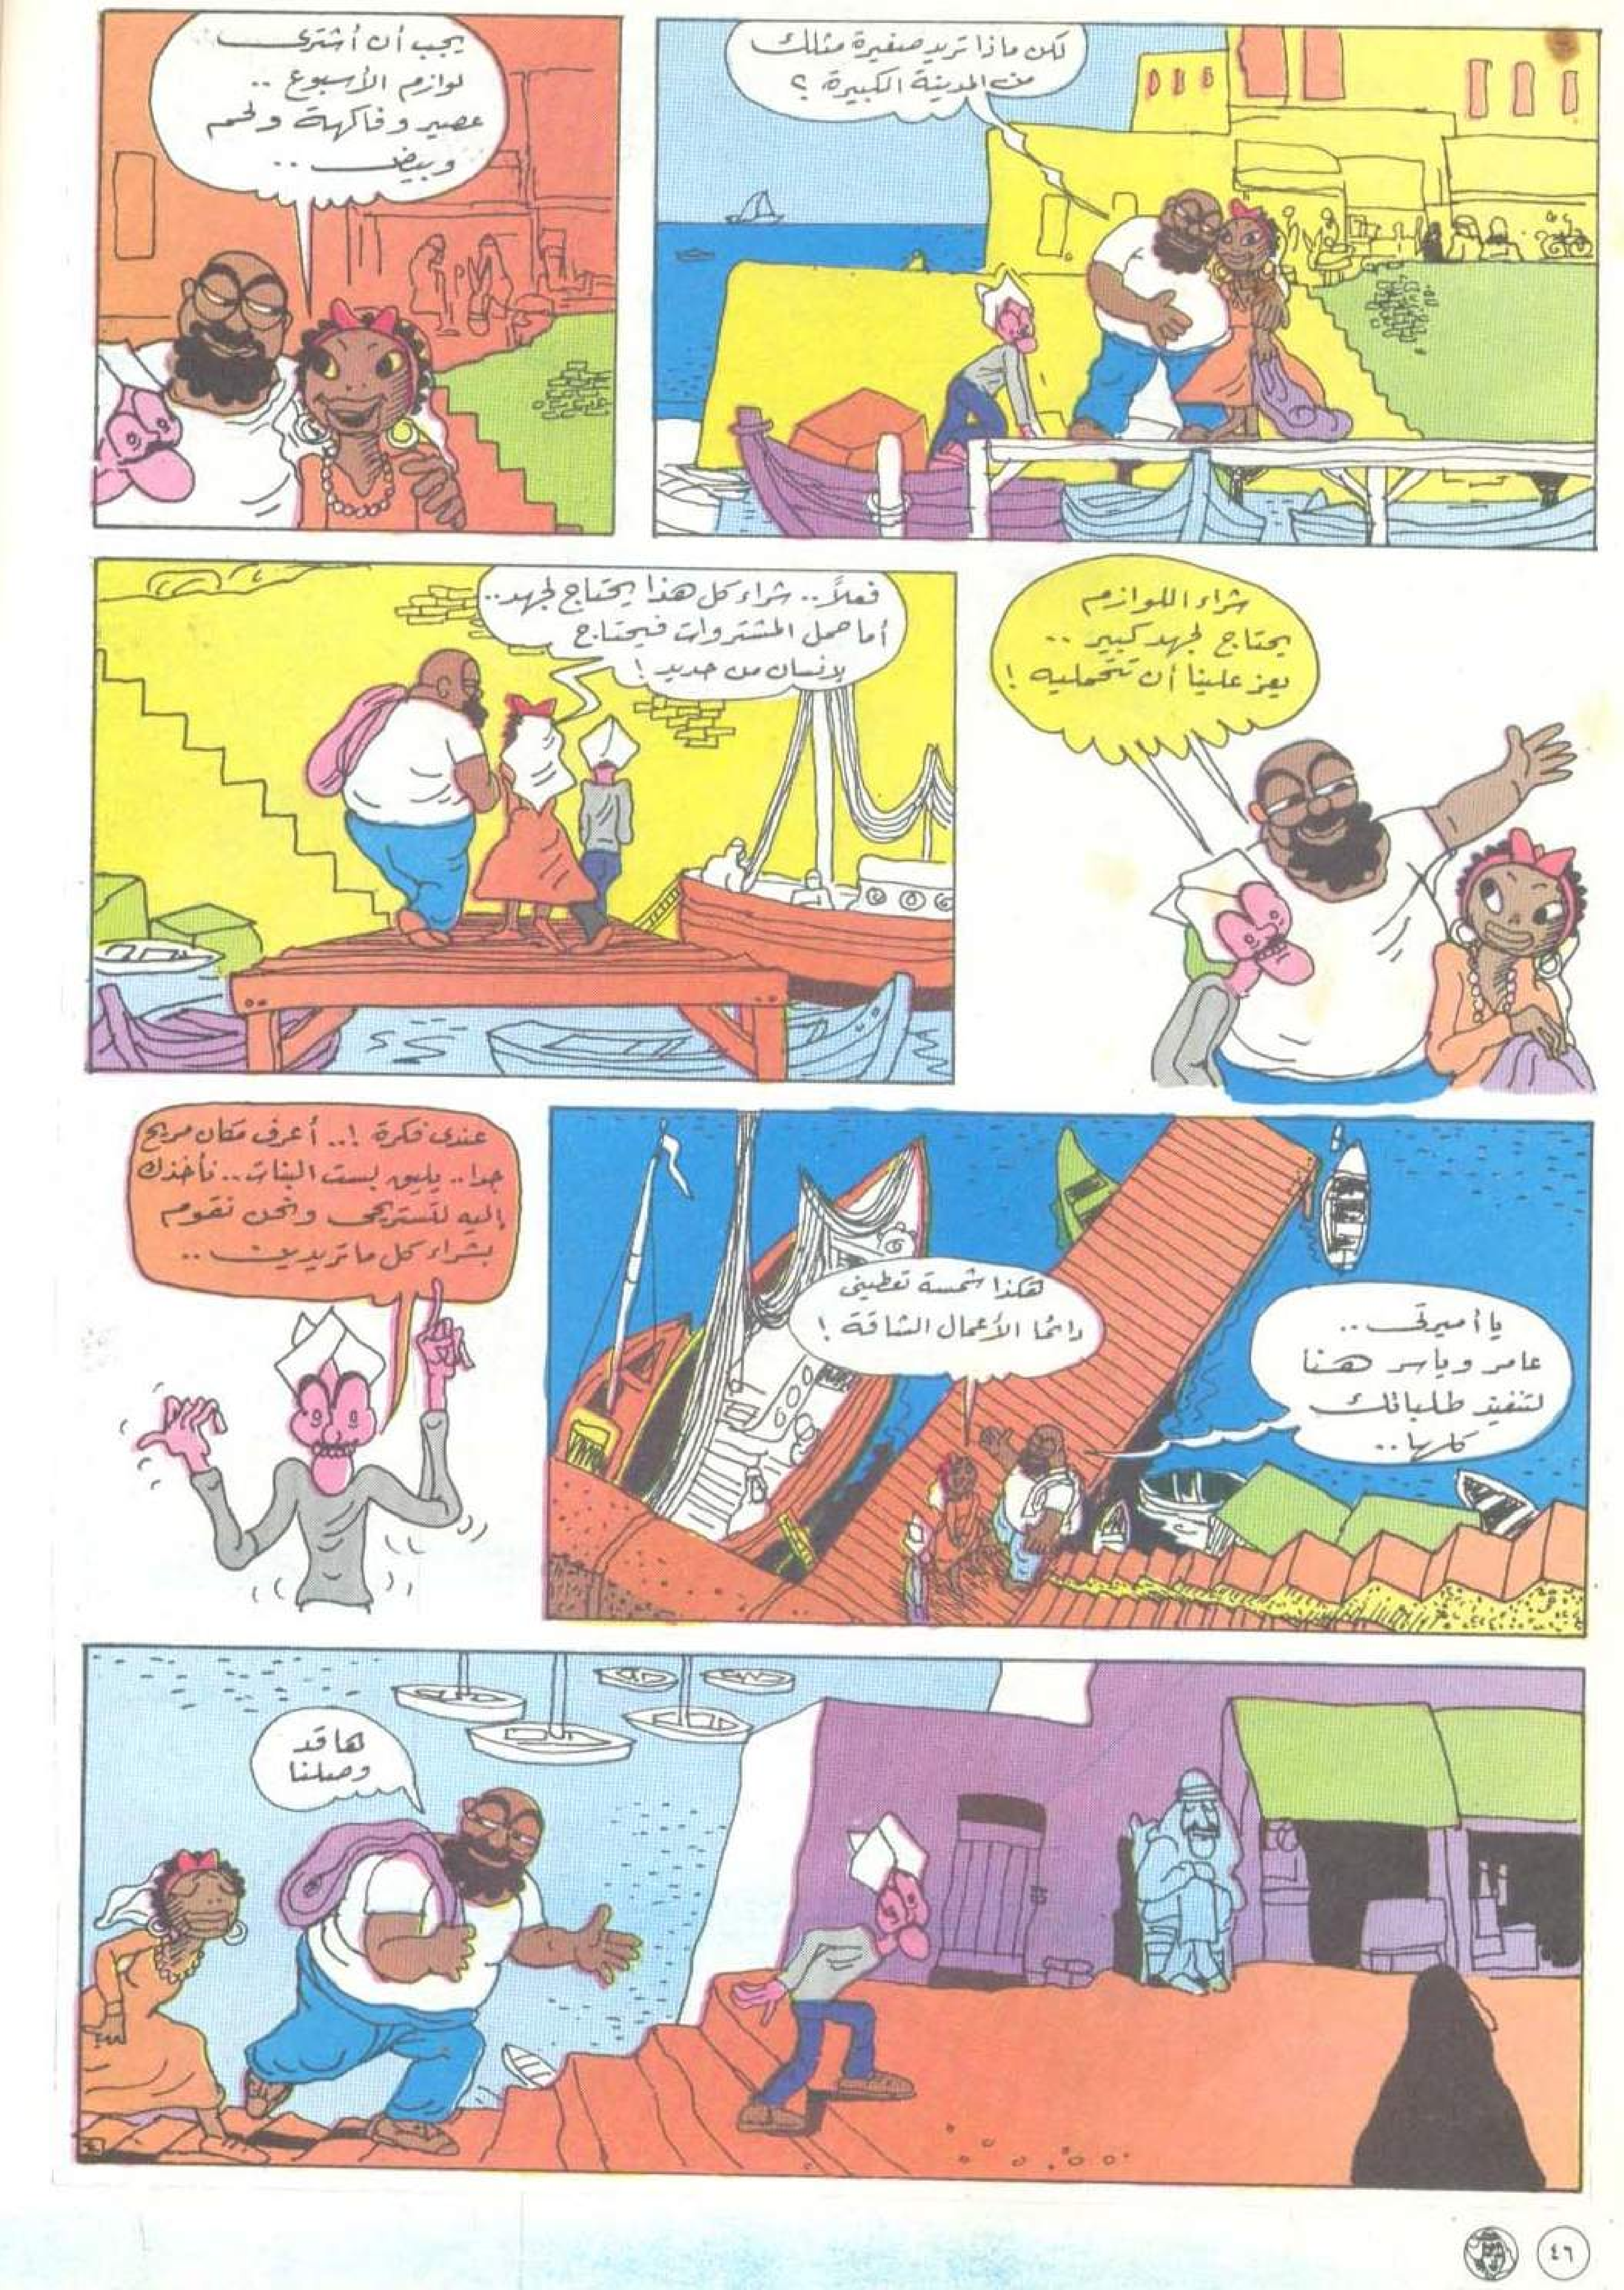 لكن ماذا تريد صغيرة مثلك
من المدينة الكبيرة ؟
يجب أن أشترى
لوازم الأسبوع ..
عصير وفاكهة ولحم
وبيض ..
شراء اللوازم
يحتاج لجهد كبير ..
يعز علينا أن تتحمليه !
فعلاً .. شراء كل هذا يحتاج لجهد ..
أما حمل المشتروات فيحتاج
لإنسان من حديد !
يا أميرتى ..
عامر وياسر هنا
لتنفيذ طلباتك
كلها ..
هكذا شمسة تعطينى
دائمًا الأعمال الشاقة !
عندى فكرة !.. أعرف مكان مريح
جدا .. يليق بست البنات .. نأخذك
إليه لتستريحى ونحن نقوم
بشراء كل ما تريدين ..
ها قد
وصلنا
٤٦